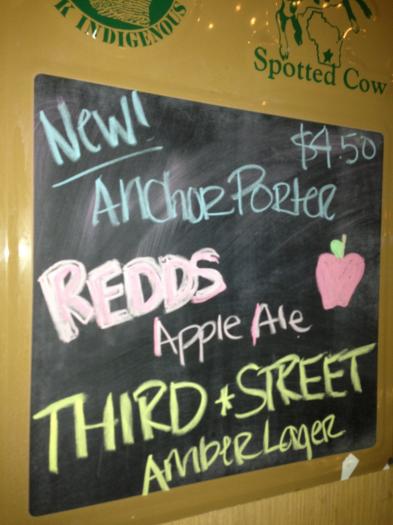 K INDIGENOUS
Spotted Cow
New!
$4.50
Anchor Porter
REDDS
Apple Ale
THIRD * STREET
Amber Lager